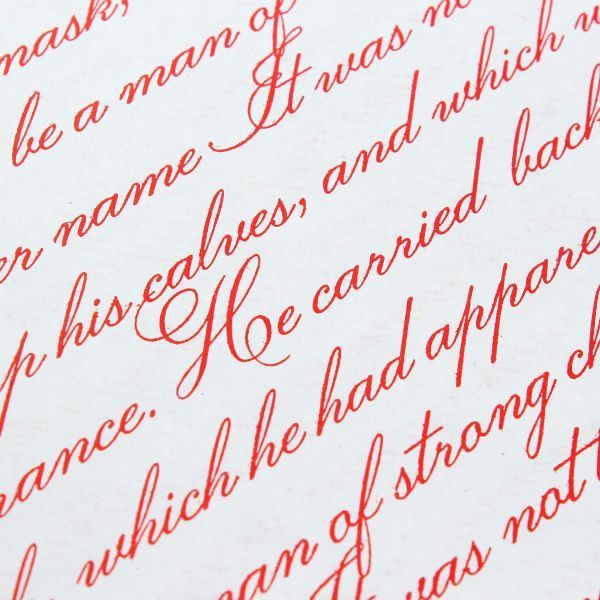 mask,
be a man of
er name It was no
p his calves, and which w
He carried back
nance.
which he had appare
man of strong ch
It was not t